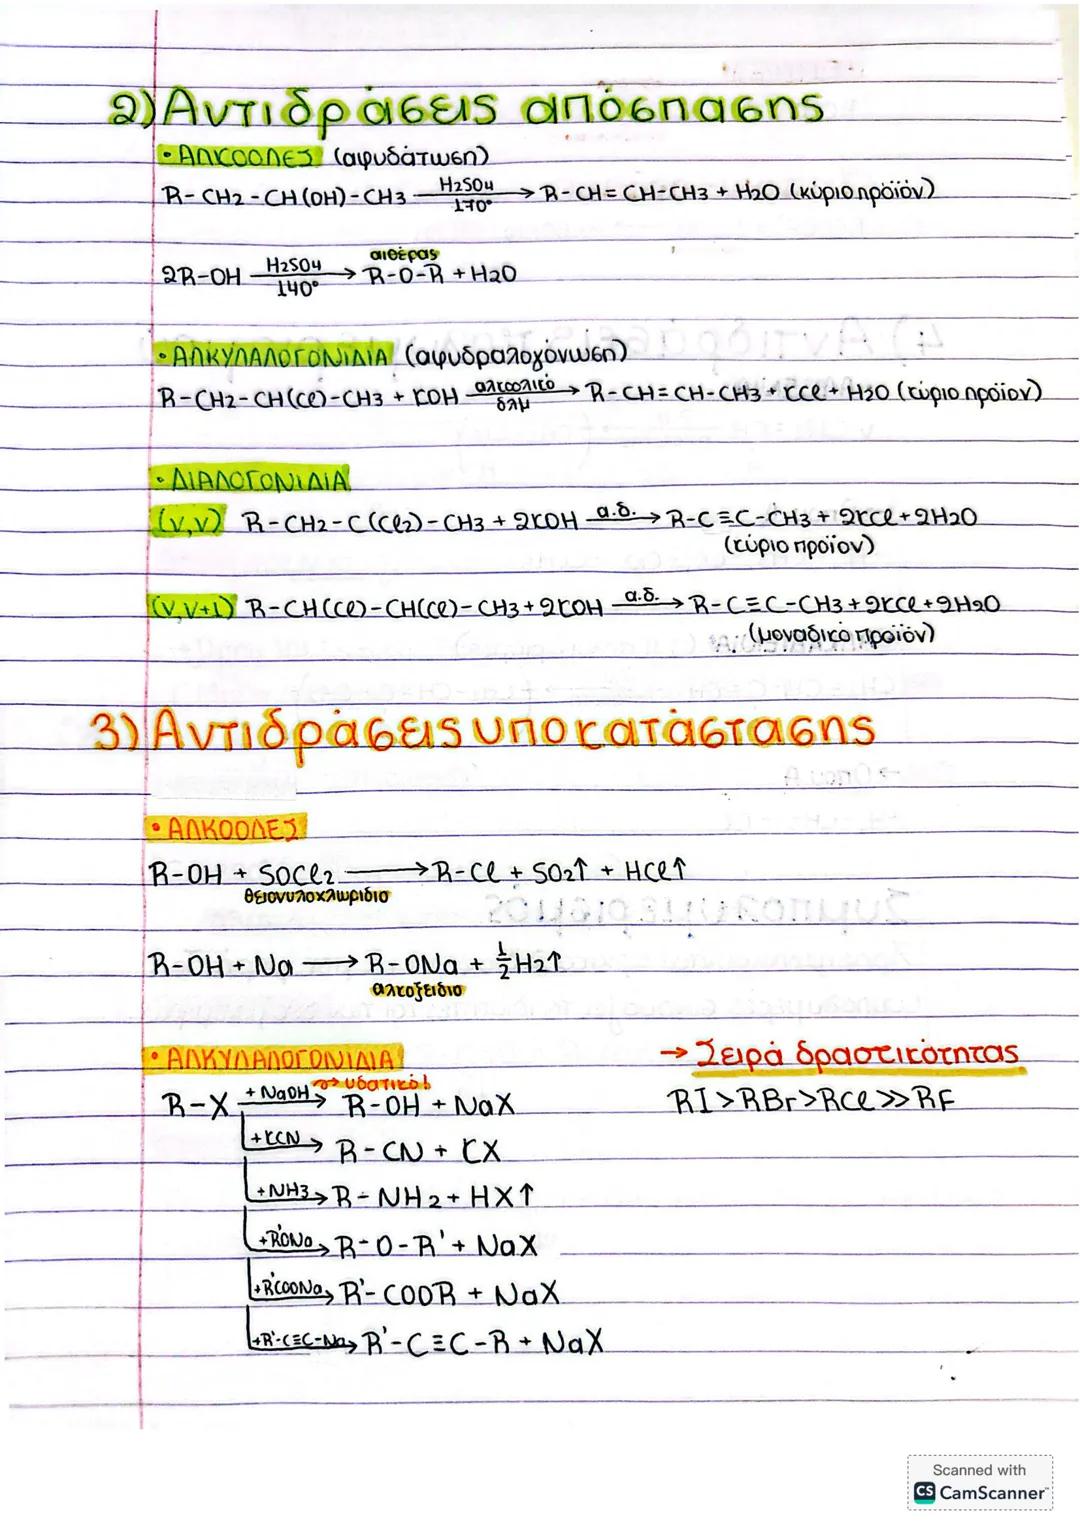 2) Αντιδράσεις απόσπασης
• ΑΛΚΟΟΛΕΣ (αφυδάτωση)
R-CH2-CH(OH)-CH3 —H2SO4 / 170°→ R-CH=CH-CH3 + H2O (κύριο προϊόν)
αιθέρας
2R-OH —H2SO4 / 140°→ R-O-R + H2O
• ΑΛΚΥΛΑΛΟΓΟΝΙΔΙΑ (αφυδραλογόνωση)
R-CH2-CH(Cl)-CH3 + KOH —αλκοολικό / δλμ→ R-CH=CH-CH3 + KCl + H2O (κύριο προϊον)
• ΔΙΑΛΟΓΟΝΙΔΙΑ
(ν,ν) R-CH2-C(Cl2)-CH3 + 2KOH —α.δ.→ R-C≡C-CH3 + 2KCl + 2H2O
(κύριο προϊον)
(ν,ν+1) R-CH(Cl)-CH(Cl)-CH3 + 2KOH —α.δ.→ R-C≡C-CH3 + 2KCl + 2H2O
(μοναδικό προϊόν)
3) Αντιδράσεις υποκατάστασης
• ΑΛΚΟΟΛΕΣ
R-OH + SOCl2 → R-Cl + SO2↑ + HCl↑
θειονυλοχλωρίδιο
R-OH + Na → R-ONa + 1/2 H2↑
αλκοξείδιο
• ΑΛΚΥΛΑΛΟΓΟΝΙΔΙΑ
→ υδατικό!
R-X —+NaOH→ R-OH + NaX
+KCN → R-CN + KX
+NH3 → R-NH2 + HX↑
+R'ONa → R-O-R' + NaX
+R'COONa → R'-COOR + NaX
+R'-C≡C-Na → R'-C≡C-R + NaX
→ Σειρά δραστικότητας
RI>RBr>RCl>>RF
Scanned with
CS CamScanner